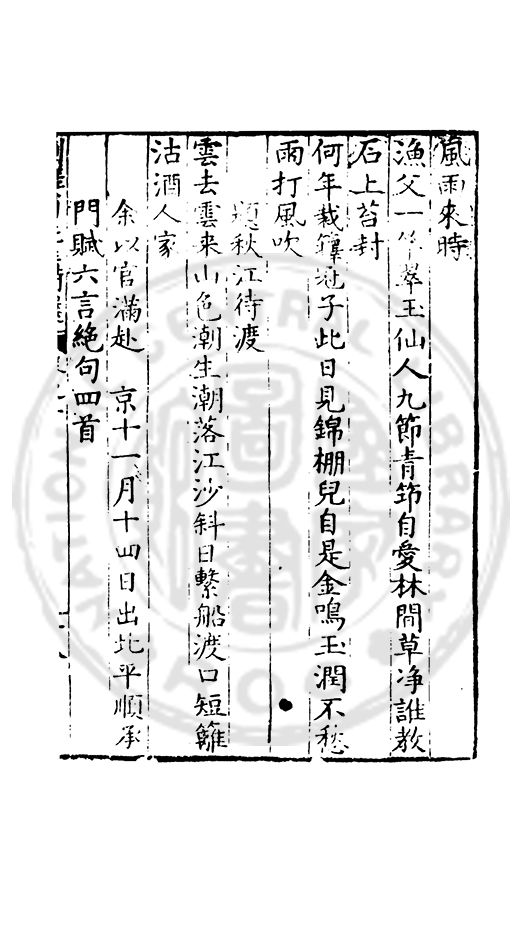 風雨來時
漁父一竿翠玉仙人九節青筇自愛林間草净誰教
石上苔封
何年栽籜冠子此日見錦棚兒自是金鳴玉潤不愁
雨打風吹
題秋江待渡
雲去雲来山色潮生潮落江沙斜日繫船渡口短籬
沽酒人家
余以官滿赴 京十一月十四日出北平順承
門賦六言絶句四首